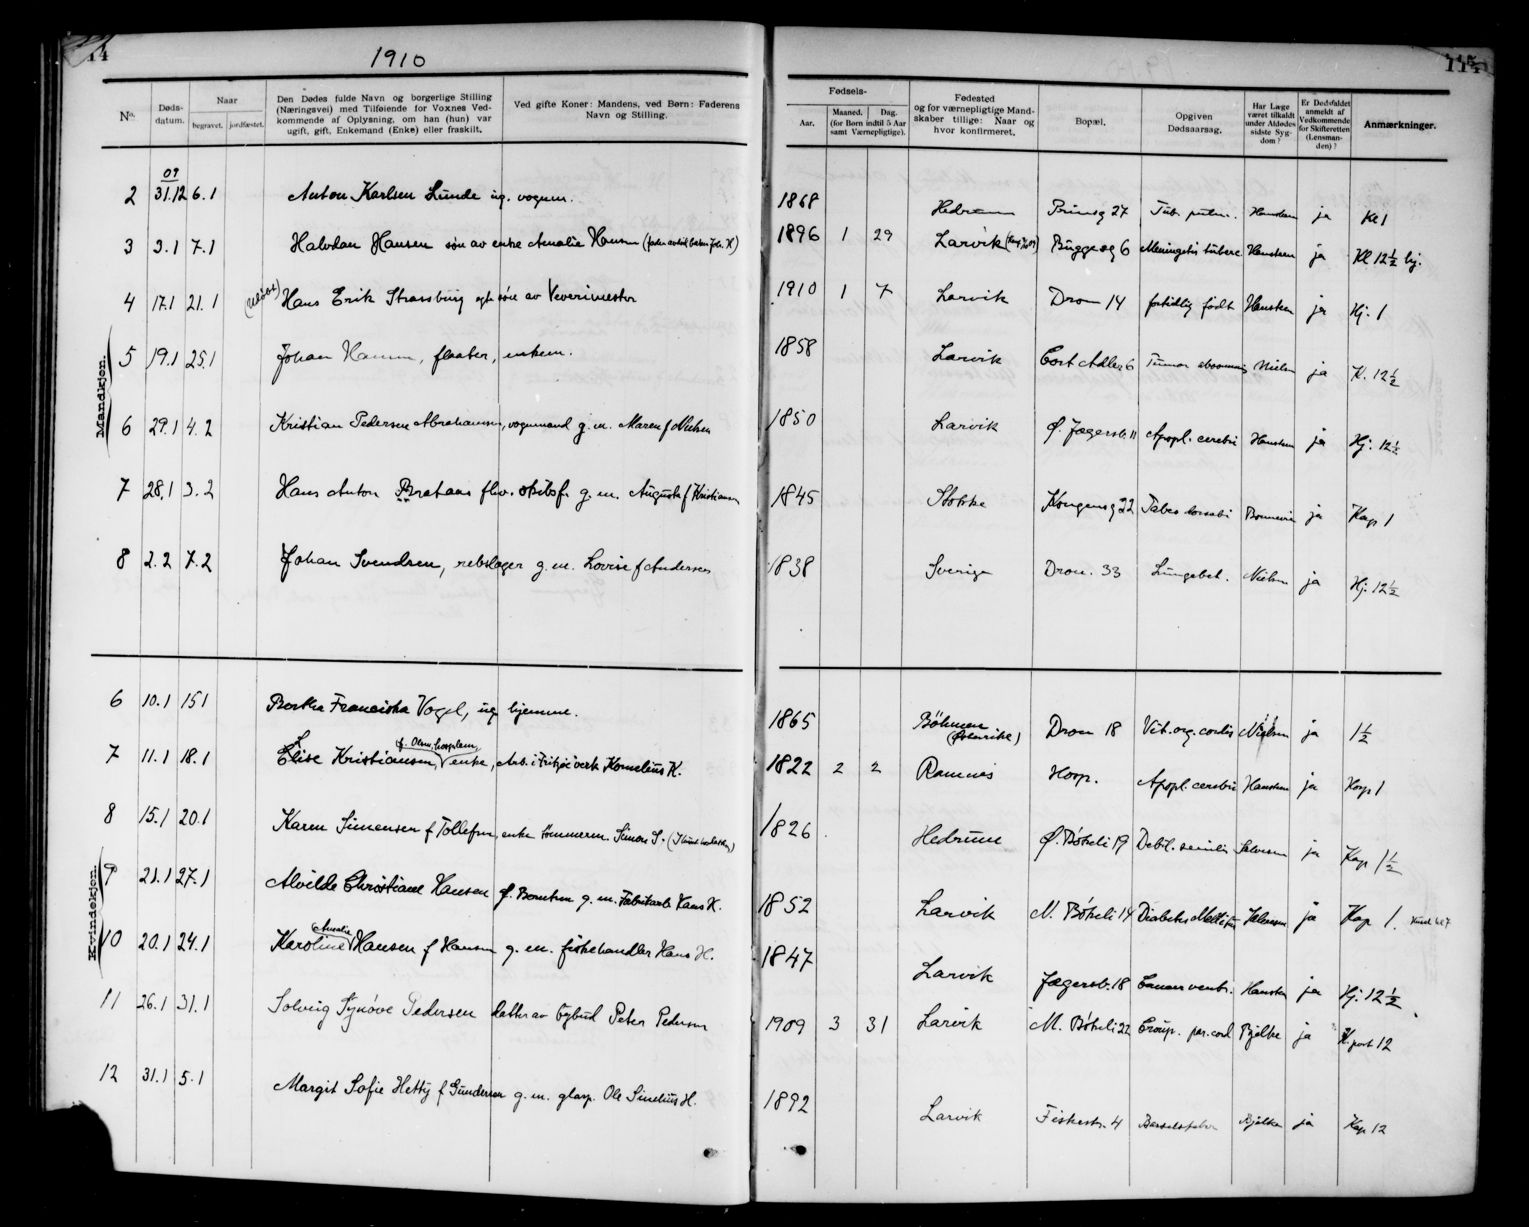 14
1910
114
No.
Døds-
datum.
Naar
begravet. jordfæstet.
Den Dødes fulde Navn og borgerlige Stilling
(Næringsvei) med Tilføiende for Voxnes Ved-
kommende af Oplysning, om han (hun) var
ugift, gift, Enkemand (Enke) eller fraskilt.
Ved gifte Koner: Mandens, ved Børn: Faderens
Navn og Stilling.
Fødsels-
Aar.
Maaned. Dag.
(for Børn indtil 5 Aar
samt Værnepligtige).
Fødested
og for værnepligtige Mand-
skaber tillige: Naar og
hvor konfirmeret.
Bopæl.
Opgiven
Dødsaarsag.
Har Læge
været tilkaldt
under Afdødes
sidste Syg-
dom?
Er Dødsfaldet
anmeldt af
Vedkommende
for Skifteretten
(Lensman-
den)?
Anmærkninger.
Mandkjøn.
09
2 31.12 6.1 Anton Karlsen Lunde ug. vognm. 1868 Hedrum Prinsg 27 Tub. pulm. Hansken ja Kl 1
3 3.1 7.1 Halvdan Hansen søn av enke Amalie Hansen 1896 1 29 Larvik Buggesg 6 Meningitis tuberc. Hansken ja Kl 12½ hj.
4 17.1 21.1 Hans Erik Strassburg egt. søn av Vevermester 1910 1 7 Larvik Dron 14 fortidlig født Hansken ja Hj. 1
5 19.1 25.1 Johan Hansen, fløater, enkem. 1858 Larvik Cort Adlers 6 Tumor Nielsen ja K. 12½
6 29.1 4.2 Kristian Pedersen Abrahamsen, vognmand g. m. Maren f Nielsen 1850 Larvik Ø. Jægersb. 11 Apopl. cerebri Hansken ja Hj. 12½
7 28.1 3.2 Hans Anton Brataas fhv. skibsf. g. m. Augusta f Kristiansen 1845 Stokke Kongensg 22 Tabes dorsalis Bonnevie ja Kap 1
8 2.2 7.2 Johan Svendsen, rebslager g. m. Lovise f Andersen 1838 Sverige Dron. 33 Lungebet. Nielsen ja Hj. 12½
Kvindekjøn.
6 10.1 15.1 Berthe Franciska Vogel, ug hjemme. 1865 Böhmen (Østerrike) Dron 18 Vit. org. cordis Nielsen ja 1½
f. Olsen, hosplem
7 11.1 18.1 Elise Kristiansen, enke, Arb. i Fritzøe verk Kornelius K. 1822 2 2 Ramnes Hosp. Apopl. cerebri Hansken ja Hosp 1
8 15.1 20.1 Karen Simensen f Tollefsen, enke tømmerm. Simon S. 1826 Hedrum Ø. Bøkeli 19 Debil. senilis Salvesen ja Kap 1½
9 21.1 27.1 Alvilde Christiane Hansen f. Berntsen g. m. Fabrikarb Hans H. 1852 Larvik N. Bøkeli 14 Diabetes Mellitus ja Kap 1.
Amalie
10 20.1 24.1 Karoline Hansen f Hansen g. m. fiskehandler Hans H. 1847 Larvik Jægersb. 18 Cancer ventr. Hansken ja Hj. 12½
11 26.1 31.1 Solveig Synøve Pedersen datter av bybud Peter Pedersen 1909 3 31 Larvik M. Bøkeli 22 Croup. Bjelke ja K. port 12
12 31.1 5.1 Margit Sofie Hetty f Gundersen g. m. glasp. Ole Sinelius H. 1892 Larvik Fiskestr. 4 Barselfeber Bjelke ja Kap 12